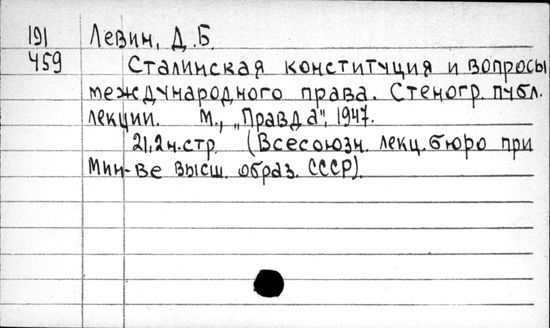 191 Левин, Д.Б.
459 Сталинская конституция и вопросы
международного права. Стеногр. публ.
лекции. М., „Правда", 1947.
21,2н.стр. (Всесоюзн. лекц. бюро при
Мин-ве высш. образ. СССР).